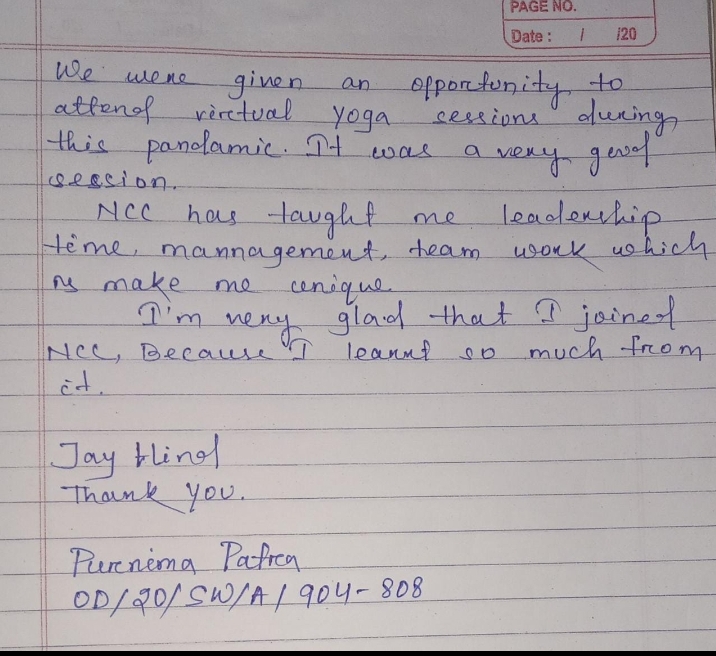 PAGE NO.
Date : / /20
We were given an opportunity to
attend virtual yoga sessions during
this pandamic. It was a very good
session.
NCC has taught me leadership
time, mannagement, team work which
is make me unique.
I'm very glad that I joined
NCC, Because I learnt so much from
it.
Jay Hind
Thank you.
Purnima Patra
OD/20/SW/A/904-808